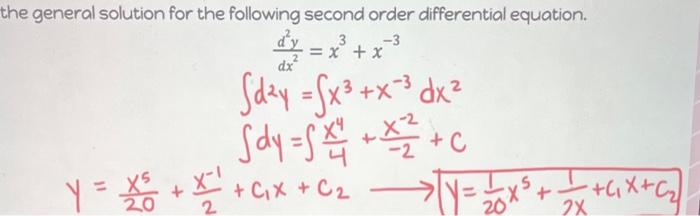 the general solution for the following second order differential equation.
d²y/dx² = x³ + x⁻³
∫d²y = ∫x³ + x⁻³ dx²
∫dy = ∫ x⁴/4 + x⁻²/-2 + C
y = x⁵/20 + x⁻¹/2 + C₁x + C₂ → y = 1/20 x⁵ + 1/2x + C₁x + C₂